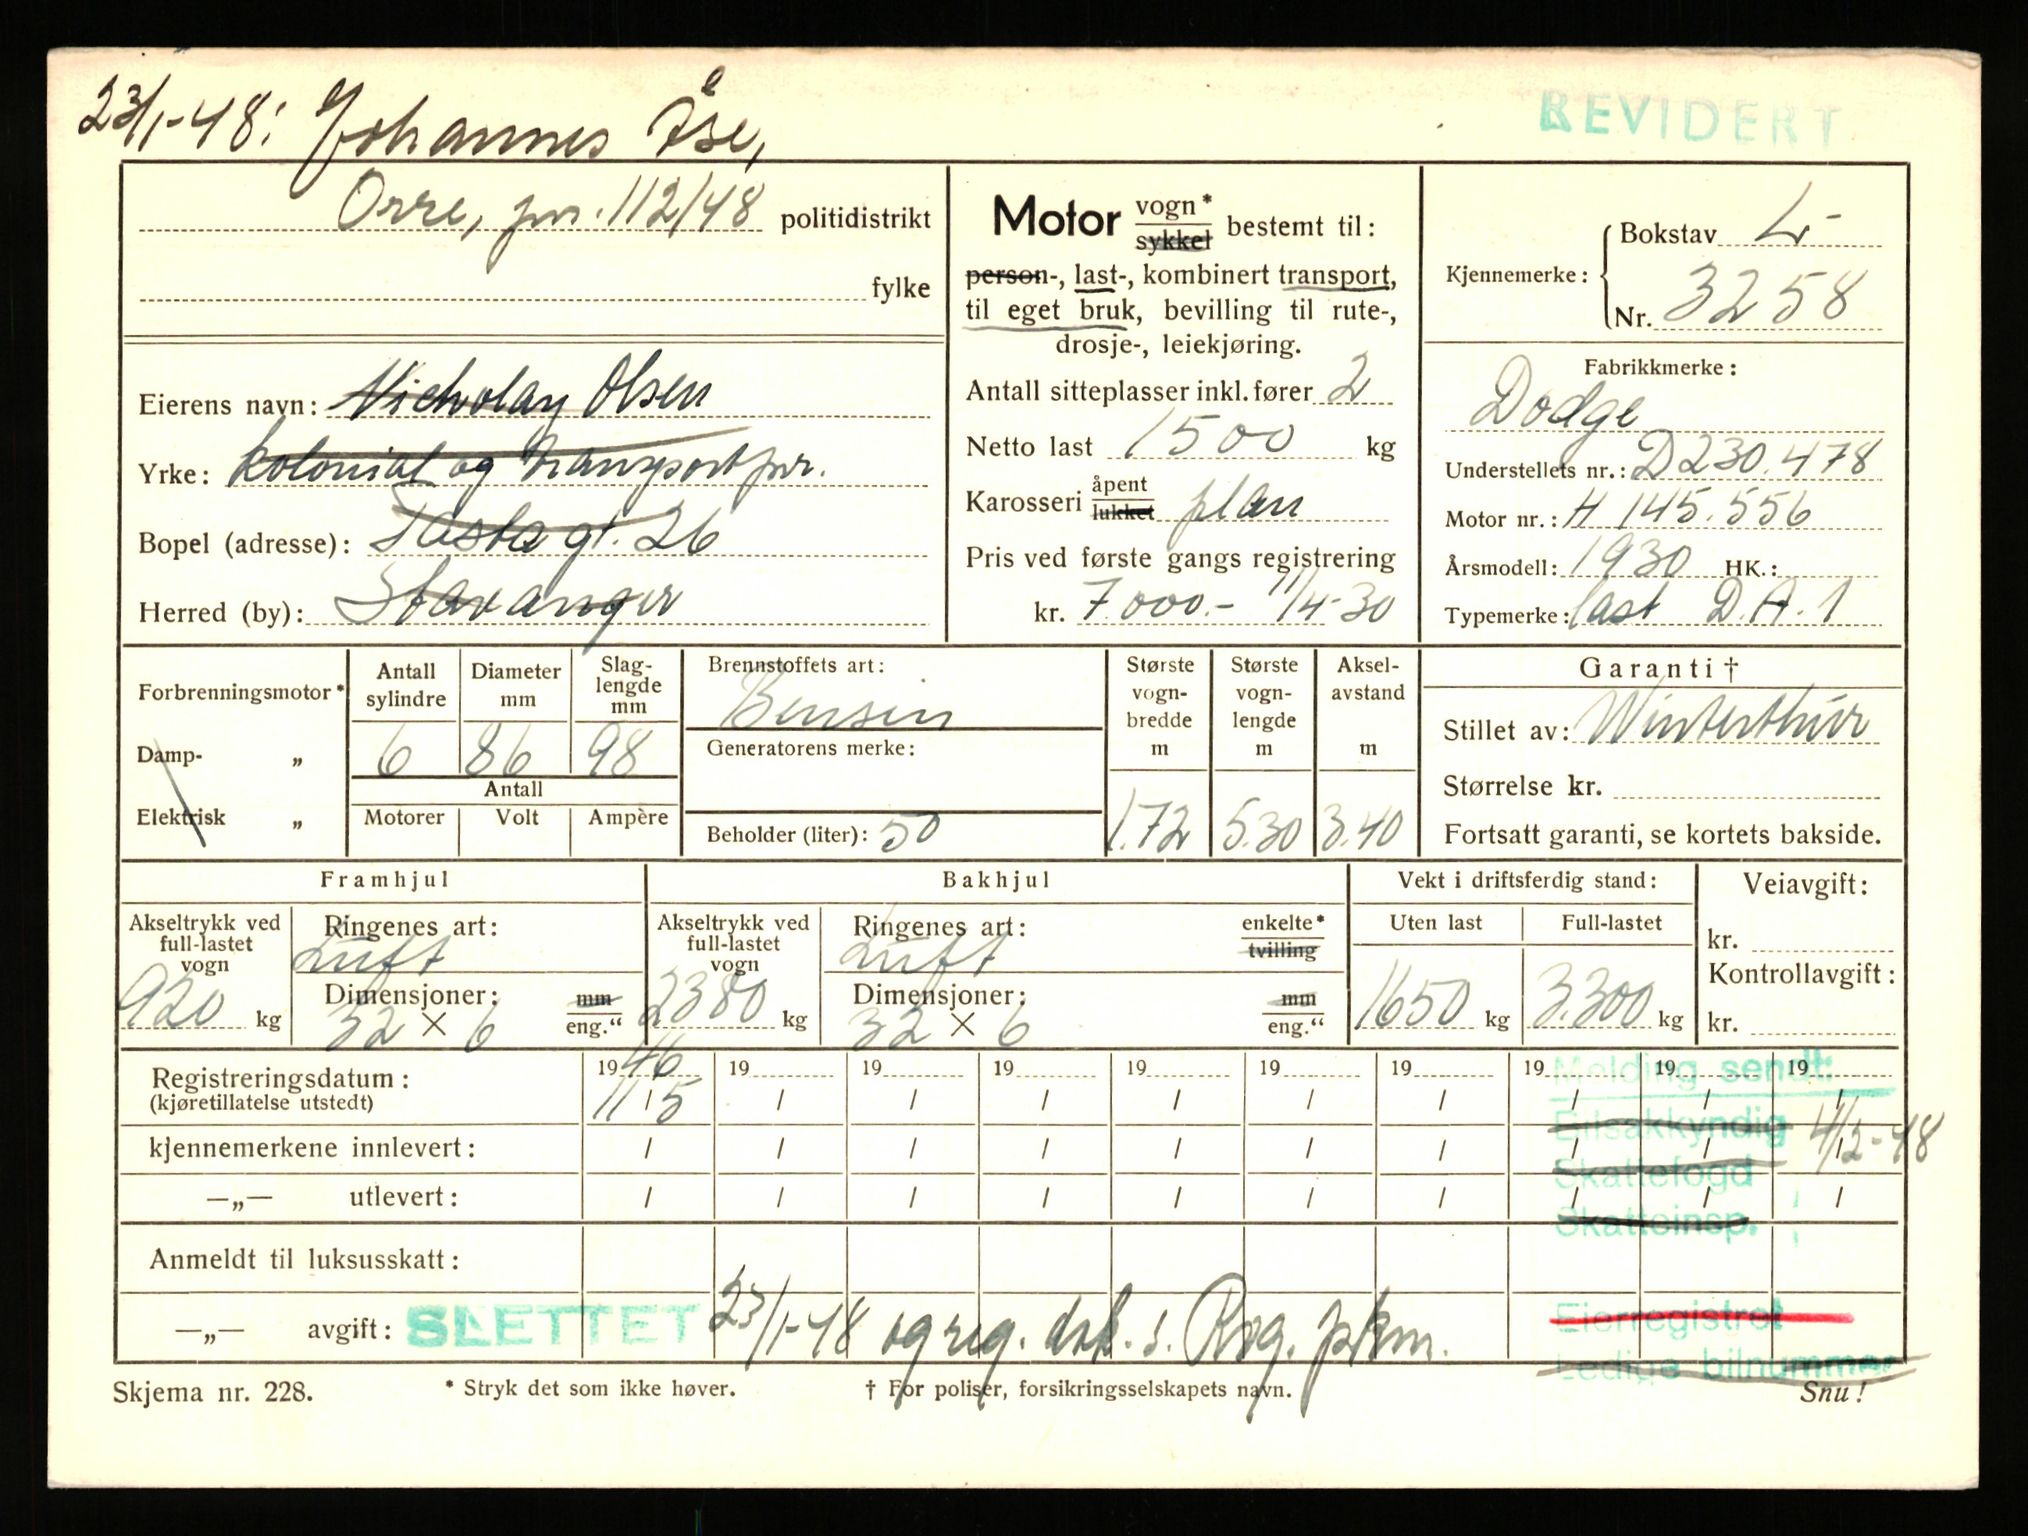 23/1-48: Johannes Åse,
REVIDERT
Orre, jnr. 112/48 politidistrikt
fylke
Eierens navn: Nicholay Olsen
Yrke: kolonial og transportforr.
Bopel (adresse): Tastagt. 26
Herred (by): Stavanger
Motor vogn*
sykkel bestemt til:
person-, last-, kombinert transport,
til eget bruk, bevilling til rute-,
drosje-, leiekjøring.
Antall sitteplasser inkl. fører 2
Netto last 1500 kg
Karosseri åpent
lukket plan
Pris ved første gangs registrering
kr. 7.000.- 11/4-30
Kjennemerke: Bokstav L-
Nr. 3258
Fabrikkmerke:
Dodge
Understellets nr.: D230.478
Motor nr.: H 145.556
Årsmodell: 1930 HK.:
Typemerke: last D.A.1
Forbrenningsmotor*
Damp- „
Elektrisk „
Antall sylindre 6
Diameter mm 86
Slag-lengde mm 98
Antall
Motorer Volt Ampère
Brennstoffets art:
Bensin
Generatorens merke:
Beholder (liter): 50
Største vogn-bredde m 1.72
Største vogn-lengde m 5.30
Aksel-avstand m 3.40
Garanti †
Stillet av: Winterthur
Størrelse kr.
Fortsatt garanti, se kortets bakside.
Framhjul
Akseltrykk ved full-lastet vogn
920 kg
Ringenes art:
Luft
Dimensjoner: mm
32 × 6 eng."
Bakhjul
Akseltrykk ved full-lastet vogn
2380 kg
Ringenes art: enkelte*
Luft tvilling
Dimensjoner: mm
32 × 6 eng."
Vekt i driftsferdig stand:
Uten last Full-lastet
1650 kg 3.300 kg
Veiavgift:
kr.
Kontrollavgift:
kr.
19 46 19 19 19 19 19 19 19 19 19
Registreringsdatum: 11/5 / / / / / / / / /
(kjøretillatelse utstedt)
kjennemerkene innlevert: / / / / / / / / / /
—„— utlevert: / / / / / / / / / /
Melding sendt:
Bilsakkyndig 4/2-48
Skattefogd
Skatteinsp.
Anmeldt til luksusskatt:
—„— avgift: SLETTET 23/1-48 og reg. ds. s. Rog. pkm.
Eierregistret
Ledige bilnummer
Skjema nr. 228. * Stryk det som ikke høver. † For poliser, forsikringsselskapets navn. Snu!